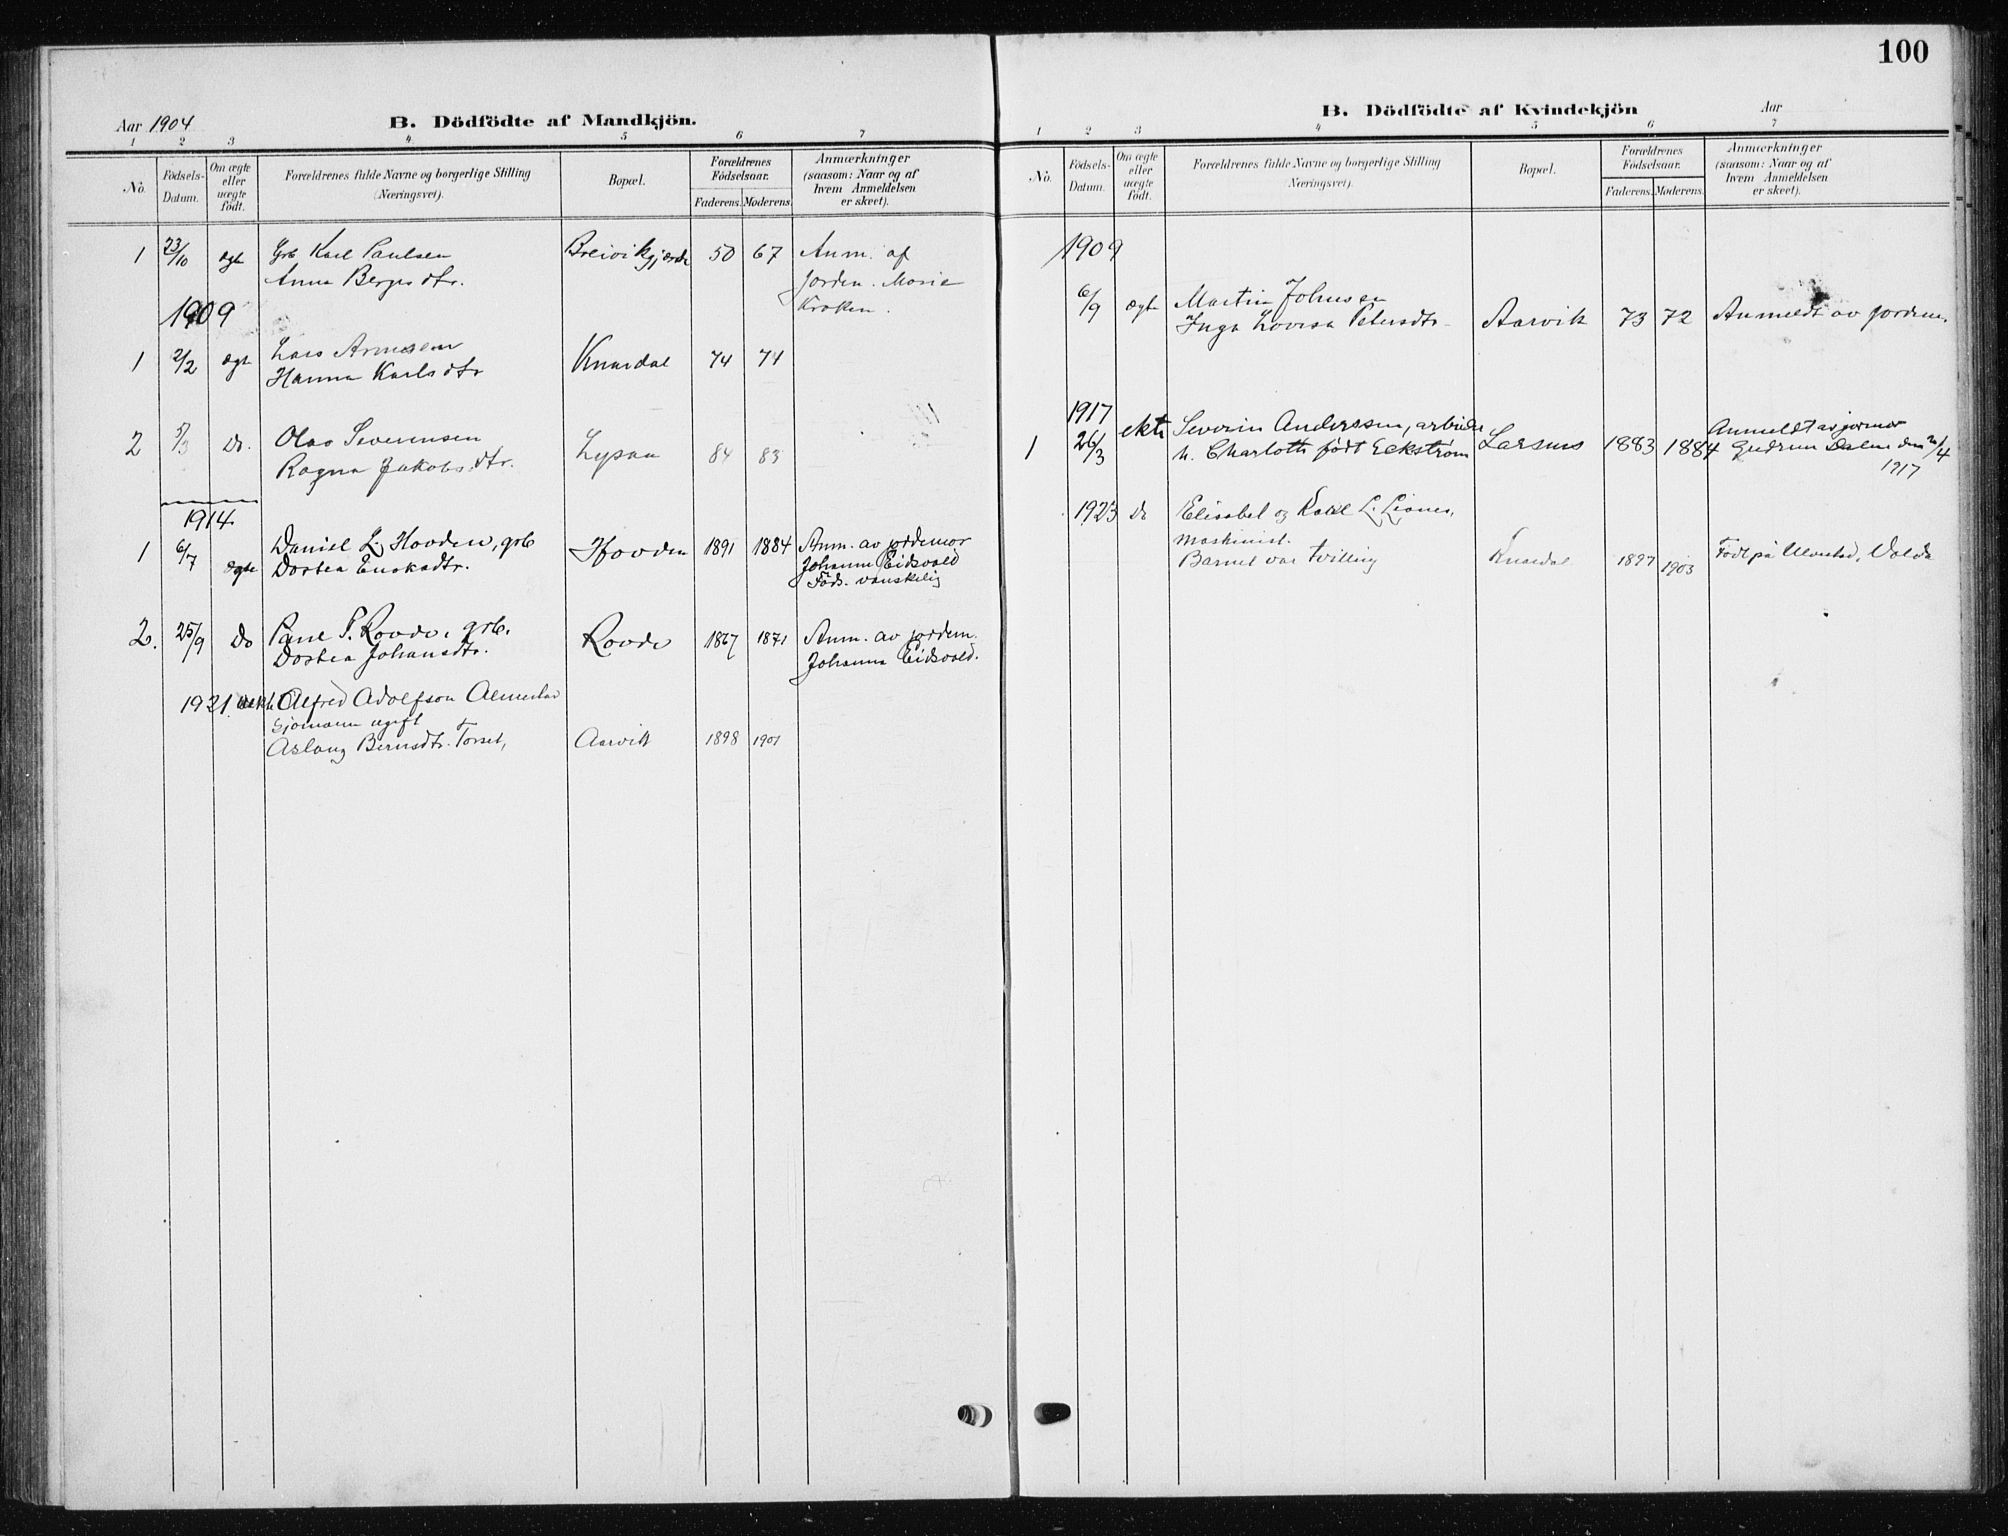 100
Aar 1904
B. Dödfödte af Mandkjön.
1 2 3 4 5 6 7
No.
Födsels-Datum.
Om ægte eller uægte födt.
Forældrenes fulde Navne og borgerlige Stilling
(Næringsvei).
Bopæl.
Forældrenes Födselsaar.
Faderens. Moderens.
Anmærkninger
(saasom: Naar og af
hvem Anmeldelsen
er skeet).
1 23/10 ægt Grb Karl Paulsen Breivikgjerde 50 67 Anm. af
Anna Bergesdtr. Jordem. Marie
Kroken.
1909
1 2/2 ægt Lars Hanna Karlsdtr Knardal 74 74
2 5/3 Do. Olav Severinsen
Ragna Jakobsdtr. 84 83
1914
1 6/7 ægte Daniel L. Hovden, grb Hovden 1891 1884 Anm. av jordemor
Dortea Johanne Eidsvold
Föds. vanskelig
2. 25/9 Do Paul P. Rovde, grb. Rovde 1867 1871 Anm. av jordem.
Dortea Johansdtr. Johanna Eidsvold.
1921 uekt. Alfred Adolfson
Sjömann ugift
Aslaug Berntsdtr. Torset, Aarvik 1898 1901
B. Dödfödte af Kvindekjön
Aar
1 2 3 4 5 6 7
No.
Födsels-
Datum.
Om ægte
eller
uægte
födt.
Forældrenes fulde Navne og borgerlige Stilling
(Næringsvei).
Bopæl.
Forældrenes
Födselsaar.
Faderens. Moderens.
Anmærkninger
(saasom: Naar og af
hvem Anmeldelsen
er skeet).
1909
6/9 ægte Martin Johnsen
Inga Lovisa Petersdtr. Aarvik 73 72 Anmeldt av jordem.
1917
1 26/3 ekte Severin Anderssen, arbeider Larsnes 1883 1884 Anmeldt av jormor
h. Charlotte født Eckstrøm Gudrun den /4
1917
1923 Do Elisabet og Karl L. Lianes,
Maskinist.
Barnet var tvilling Knardal 1897 1903 Född på Ulvestad, Volda